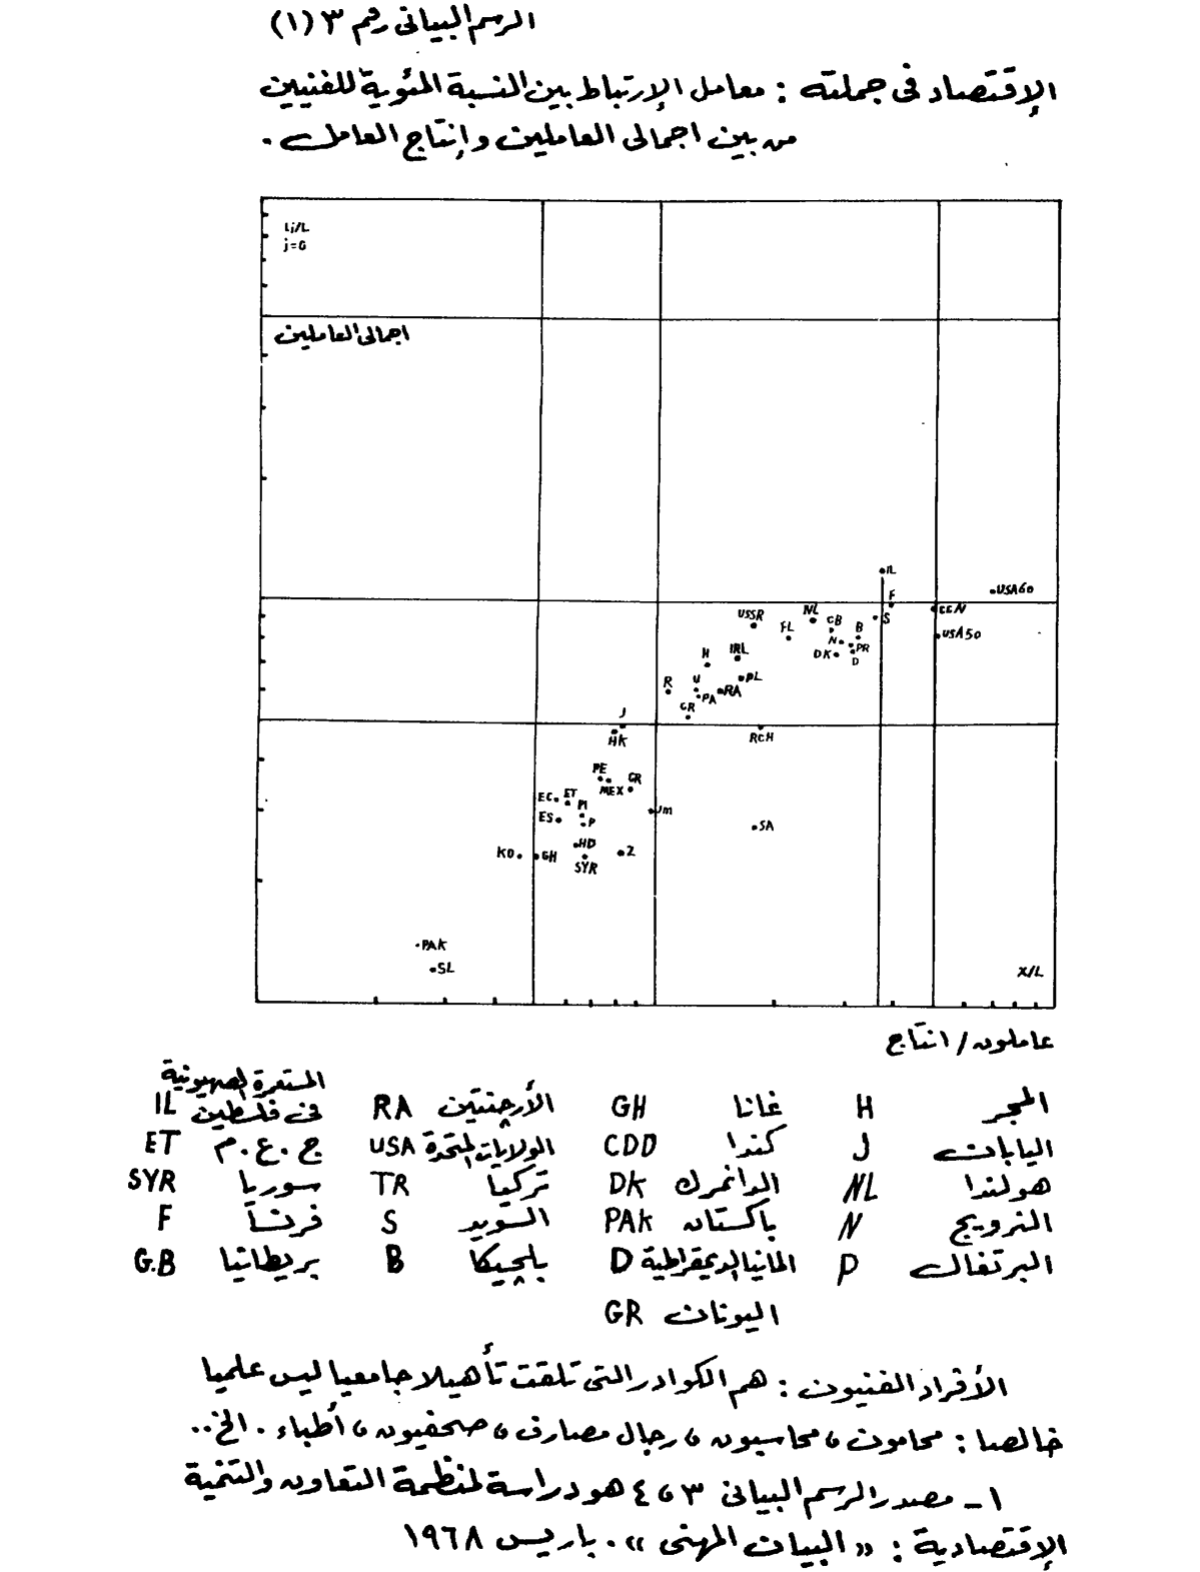 الرسم البياني رقم ٣ (١)
الإقتصاد في جملته : معامل الإرتباط بين النسبة المئوية للفنيين
من بين اجمالى العاملين وإنتاج العامل .
Lj/L
j=G
اجمالى العاملين
IL
USA60
F
CCN
NL
S
USSR
FL
GB
B
USA50
N
PR
DK
D
H
IRL
PL
R
U
PA
RA
GR
J
HK
RCH
PE
MEX
GR
EC
ET
PI
Jm
ES
P
SA
HD
KO
GH
Z
SYR
PAK
SL
X/L
عاملون / انتاج
المجر H غانا GH الأرجنتين RA المستعمرة الصهيونية في فلسطين IL
اليابان J كندا CDD الولايات المتحدة USA ج . ع . م ET
هولندا NL الدانمرك DK تركيا TR سوريا SYR
النرويج N باكستان PAK السويد S فرنسا F
البرتغال P المانيا الديمقراطية D بلجيكا B بريطانيا G.B
اليونان GR
الأفراد الفنيون : هم الكوادر التى تلقت تأهيلا جامعيا ليس علميا
خالصا : محامون ، محاسبون ، رجال مصارف ، صحفيون ، أطباء . الخ ..
١ - مصدر الرسم البيانى ٣ ، ٤ هو دراسة لمنظمة التعاون والتنمية
الإقتصادية : « البيان المهنى » . باريس ١٩٦٨